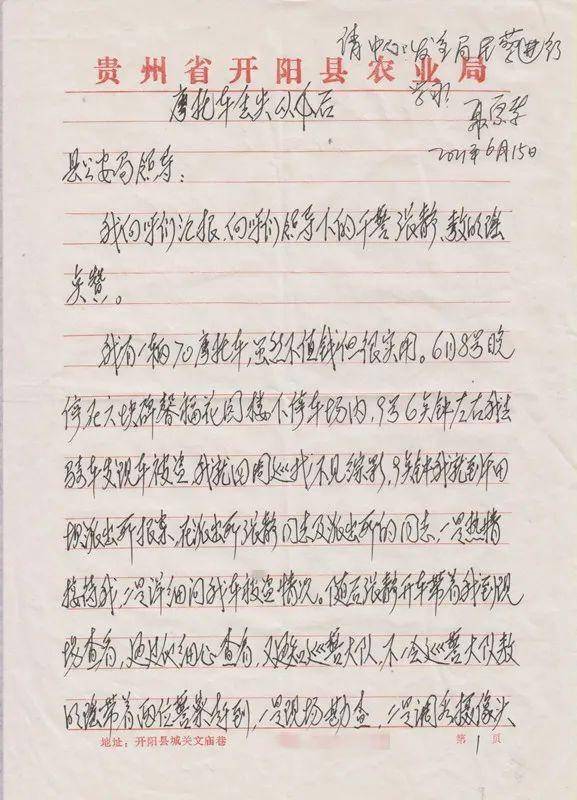 请中心发至局民警进行
学习
贵州省开阳县农业局
摩托车丢失以后
2021年6月15日
县公安局领导:
我向你们汇报,向你们领导下的干警张静、敖明强
点赞。
我有一辆70摩托车,虽然不值钱但很实用。6月8号晚
停在六块碑馨福花园楼下停车场内,9号6点钟左右我去
骑车发现车被盗,我就四周巡找不见综影,9点钟我就到
坝派出所报案,在派出所张静同志及派出所的同志,一是热情
接待我,二是详细问我车被盗情况。随后张静开车带着我到现
场查看,通过细心查看,又通知巡警大队,不一会巡警大队敖
明强带着两位警察赶到,一是现场勘查,二是调看摄像头
地址:开阳县城关文庙巷
第1页